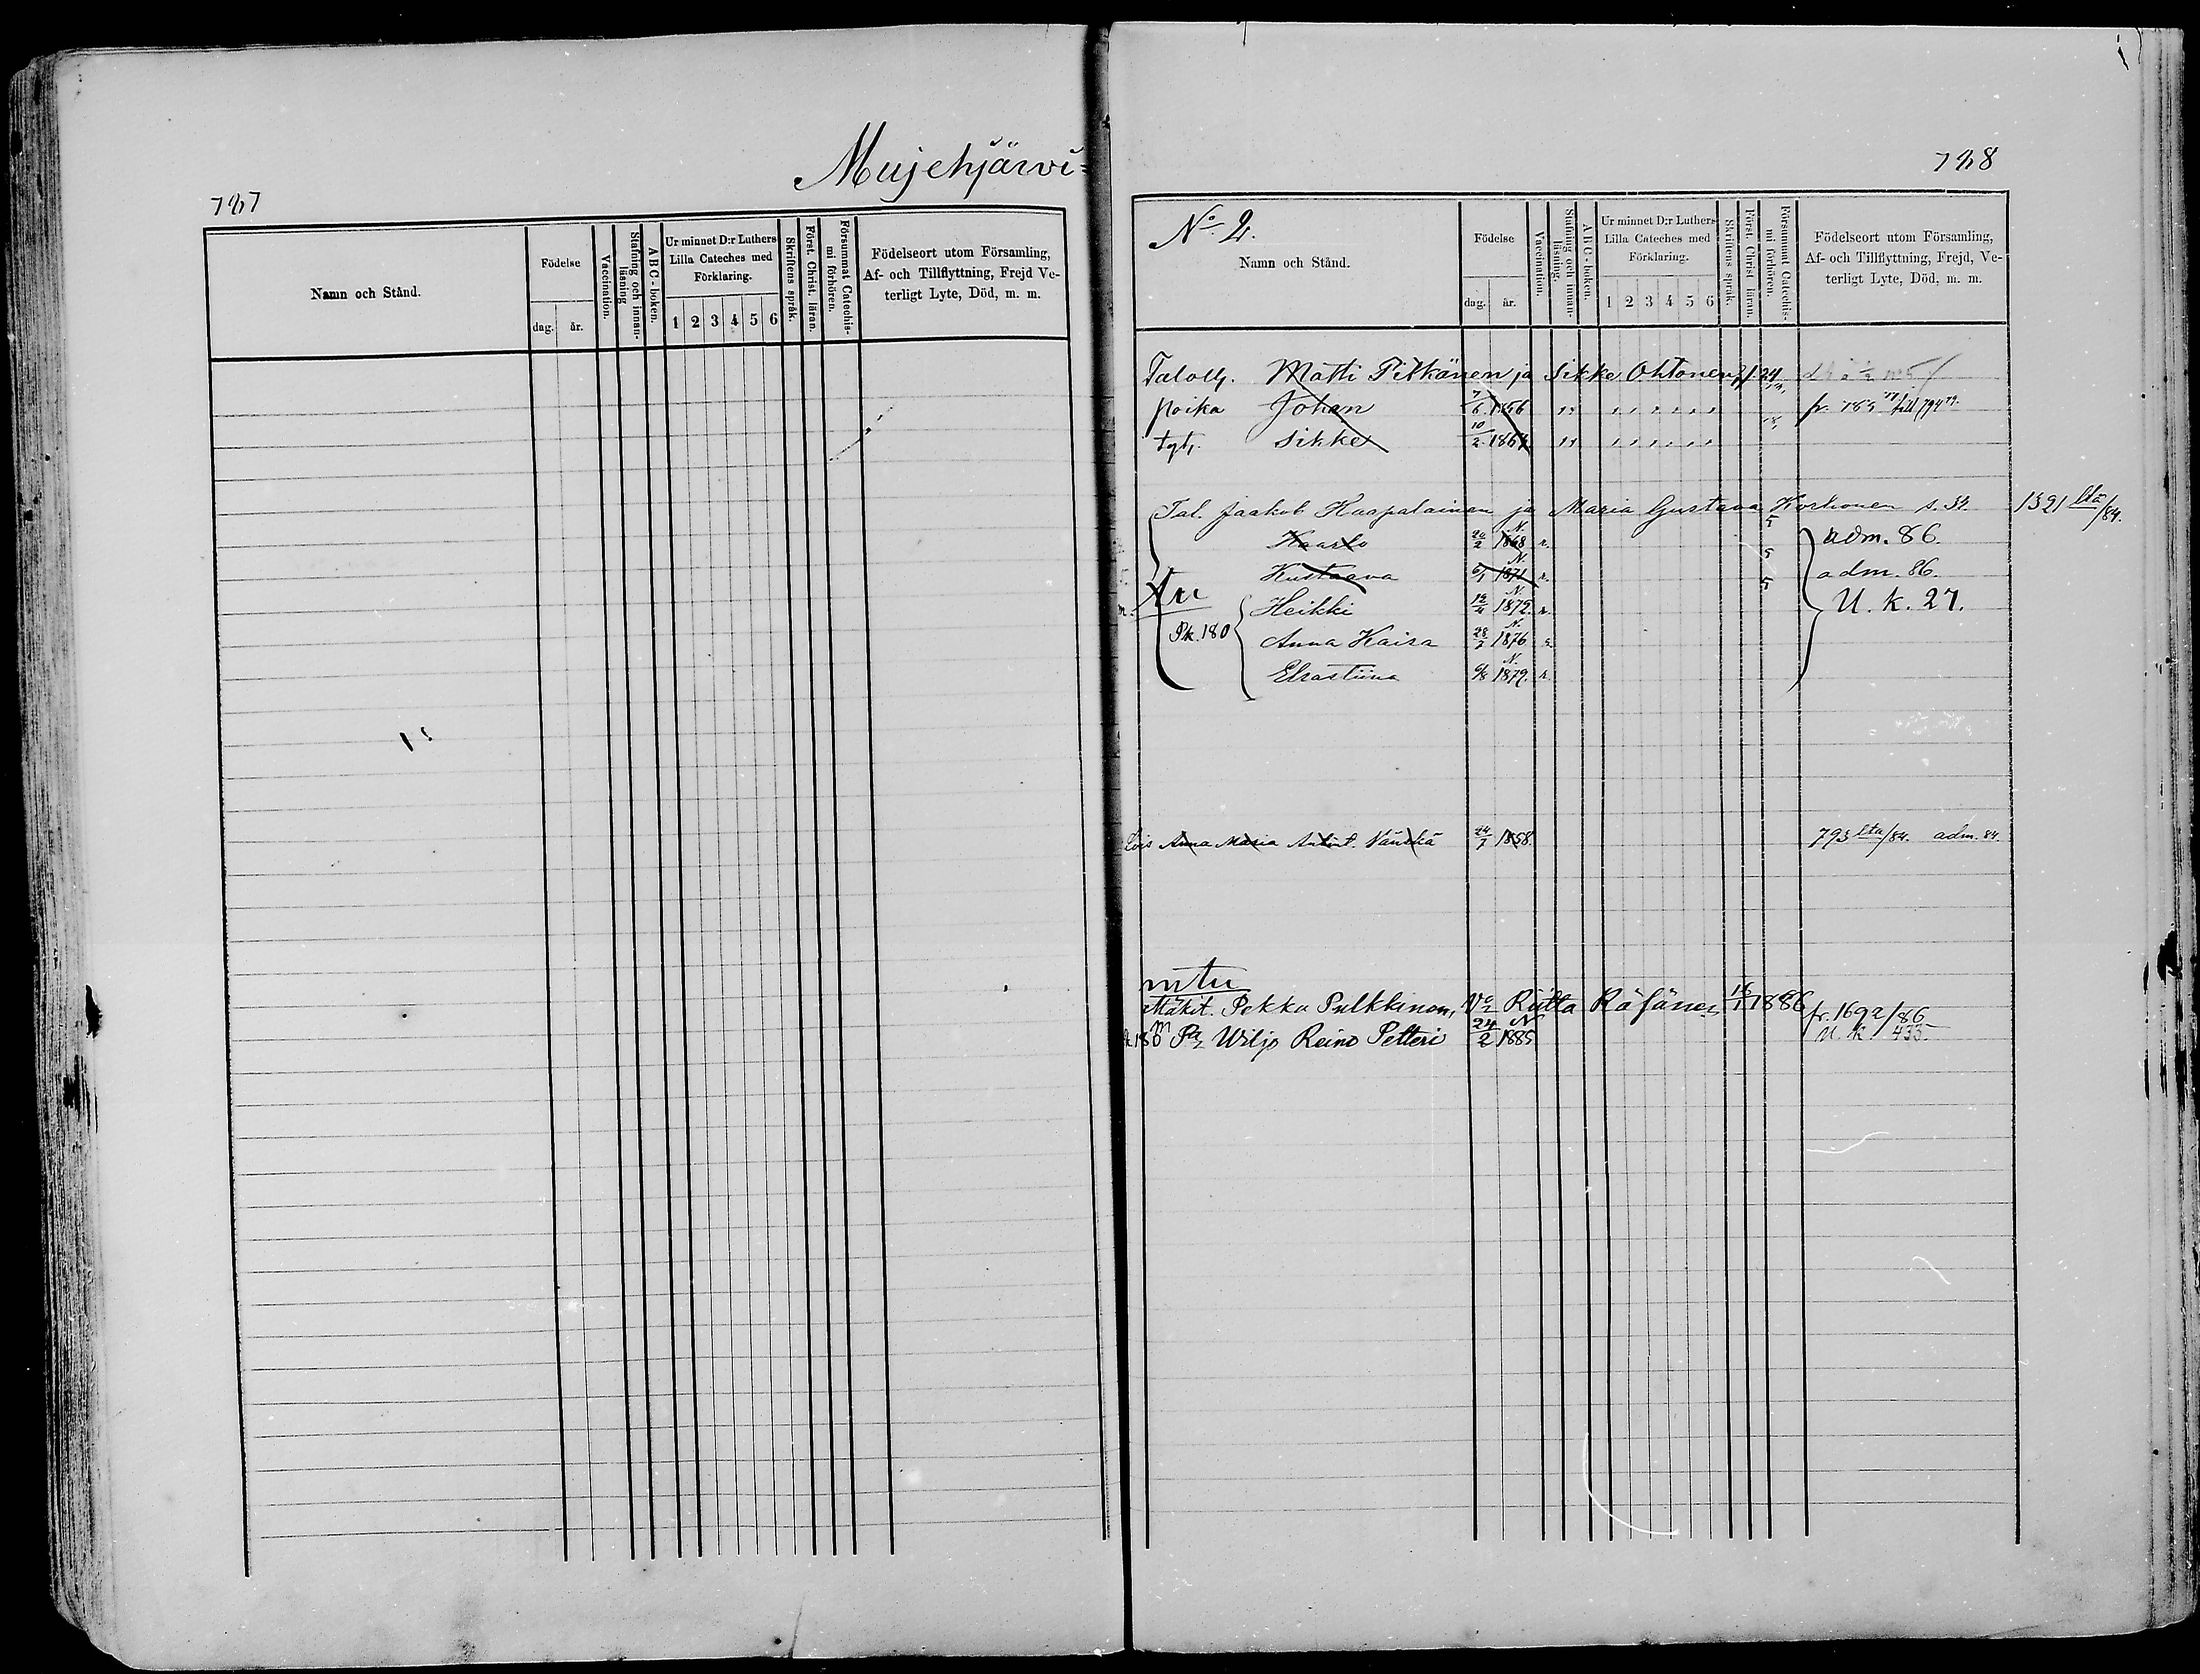 Mujehjärvi-
787
Namn och Stånd.
Födelse
dag.
år.
Vaccination.
Stafning och innan-läsning
ABC-boken.
Ur minnet D:r Luthers Lilla Cateches med Förklaring.
1 2 3 4 5 6
Skriftens språk.
Först. Christ. läran.
Försummat Catechis-mi förhören.
Födelseort utom Församling, Af- och Tillflyttning, Frejd Ve-terligt Lyte, Död, m. m.
788
No 2.
Namn och Stånd.
Födelse
dag.
år.
Vaccination.
Stafning och innan-läsning.
ABC-boken.
Ur minnet D:r Luthers Lilla Cateches med Förklaring.
1 2 3 4 5 6
Skriftens språk.
Först. Christ läran.
Försummat Catechis-mi förhören.
Födelseort utom Församling, Af- och Tillflyttning, Frejd, Ve-terligt Lyte, Död, m. m.
Matti Pitkänen ja Sikke Ohtonen
poika Johan 7/6 1856 fr. 785 till 794 79.
Sikke 10/2 1864
Tal. Jaakob Haapalainen ja Maria Gustava Korhonen s. 34 1391 lta/84.
Kaarlo 24/2 1868 N. r. 5 adm. 86.
Kustaava 6/1 1871 N. r. 5 adm. 86.
Heikki 1872 N. r. U. k. 27.
Pk. 180 Anna Kaisa 28/2 1876 N.
Elsastiina 6/8 1879. N. r.
Lois Anna Maria Antint. Vänskä 24/7 1858. 793 lta/84. adm. 84.
mtu
Mäkit. Pekka Pulkkinen, Vo Riitta Räsänen 1886 fr. 1692/86
Wiljo Reino Petteri 24/2 1885 N U. k 433.